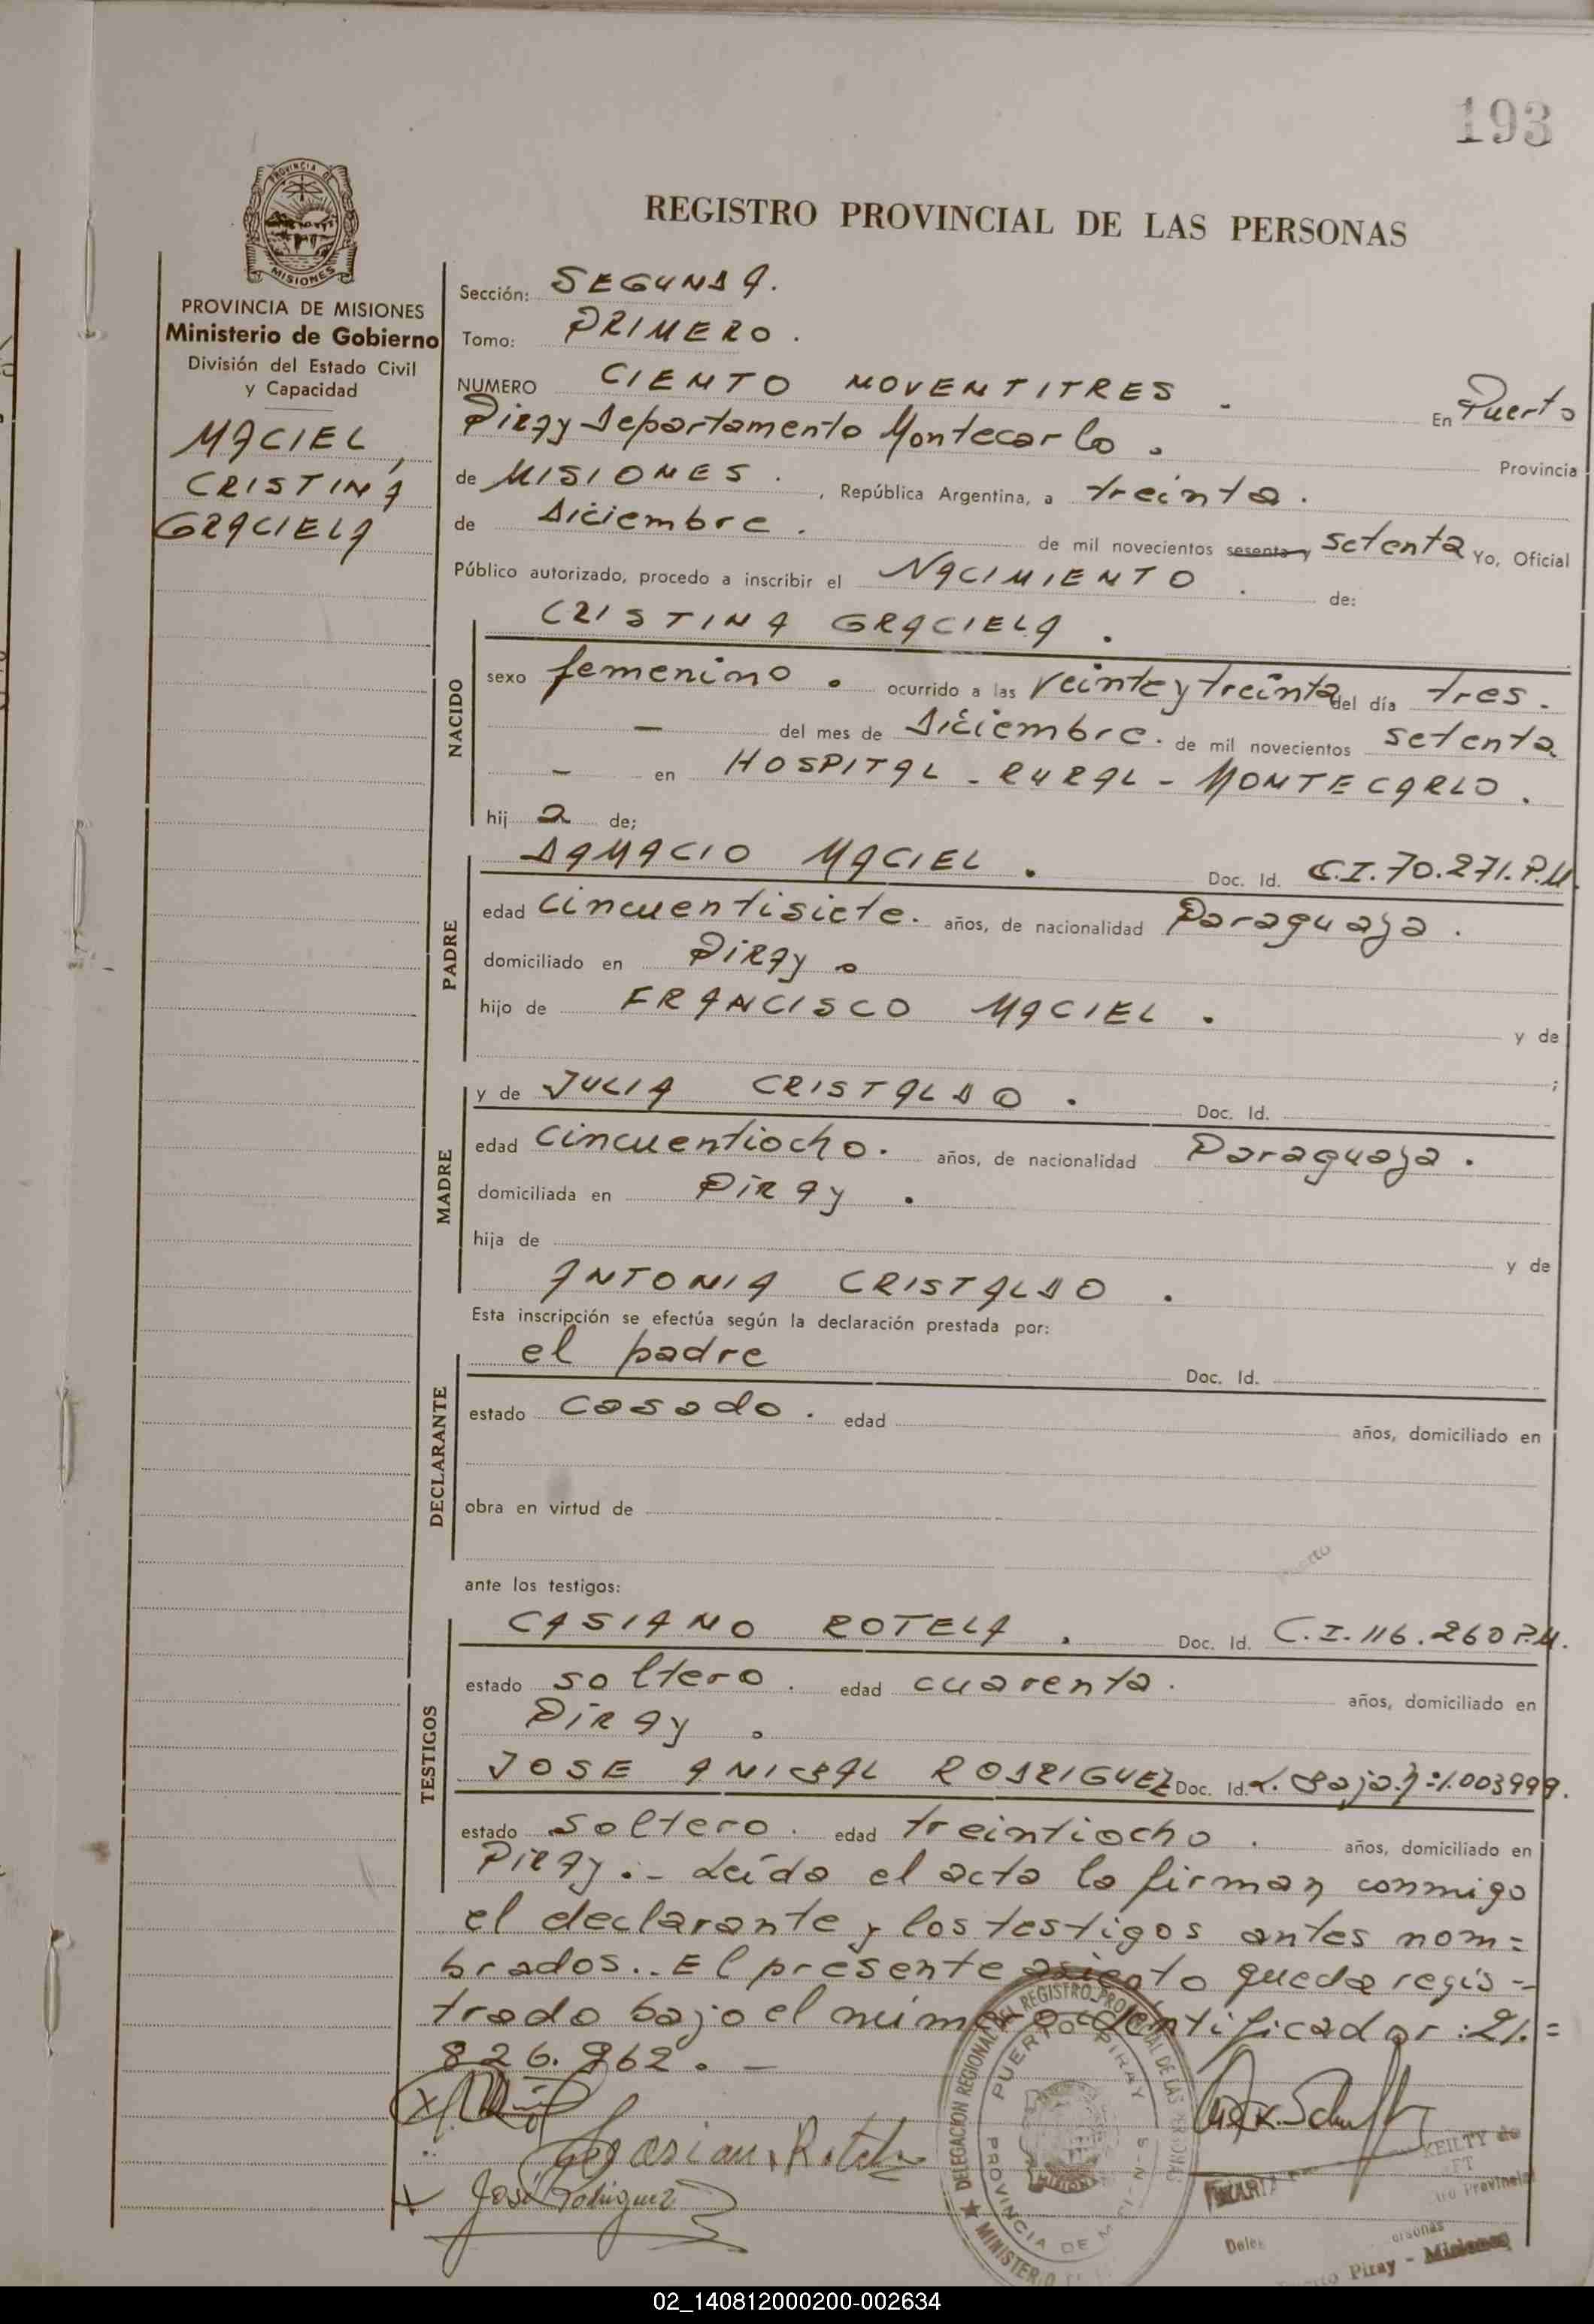 193
PROVINCIA DE MISIONES
REGISTRO PROVINCIAL DE LAS PERSONAS
PROVINCIA DE MISIONES
Ministerio de Gobierno
División del Estado Civil
y Capacidad
MACIEL,
CRISTINA
GRACIELA
Sección: SEGUNDA.
Tomo: PRIMERO.
NUMERO CIENTO NOVENTITRES. En Puerto
Piray Departamento Montecarlo. Provincia
de MISIONES. , República Argentina, a treinta.
de Diciembre. de mil novecientos sesenta y setenta Yo, Oficial
Público autorizado, procedo a inscribir el NACIMIENTO. de:
CRISTINA GRACIELA.
NACIDO
sexo femenino. ocurrido a las veinte y treinta del día tres.
— del mes de Diciembre. de mil novecientos setenta
— en HOSPITAL - RURAL - MONTECARLO.
hij a de;
PADRE
DAMACIO MACIEL. Doc. Id. C.I. 70.271. P.M.
edad cincuentisiete. años, de nacionalidad Paraguaya.
domiciliado en Piray.
hijo de FRANCISCO MACIEL. y de
;
MADRE
y de JULIA CRISTALDO. Doc. Id.
edad cincuentiocho. años, de nacionalidad Paraguaya.
domiciliada en Piray.
hija de y de
ANTONIA CRISTALDO.
Esta inscripción se efectúa según la declaración prestada por:
DECLARANTE
el padre Doc. Id.
estado casado. edad años, domiciliado en
obra en virtud de
ante los testigos:
TESTIGOS
CASIANO ROTELA. Doc. Id. C.I. 116.260 P.M.
estado soltero. edad cuarenta. años, domiciliado en
Piray.
JOSE ANIBAL RODRIGUEZ Doc. Id. 1.003999.
estado soltero. edad treintiocho. años, domiciliado en
Piray.- Leída el acta la firman conmigo
el declarante y los testigos antes nom=
brados.. El presente asiento queda regis-
trado bajo el número identificador: 21.=
826.962.-
Casiano Rotela
José Rodriguez
DELEGACION REGIONAL DEL REGISTRO PROVINCIAL DE LAS PERSONAS
PUERTO PIRAY
PROVINCIA DE MISIONES
MINISTERIO
MARIA KEILTY de
Piray - Misiones
02_140812000200-002634